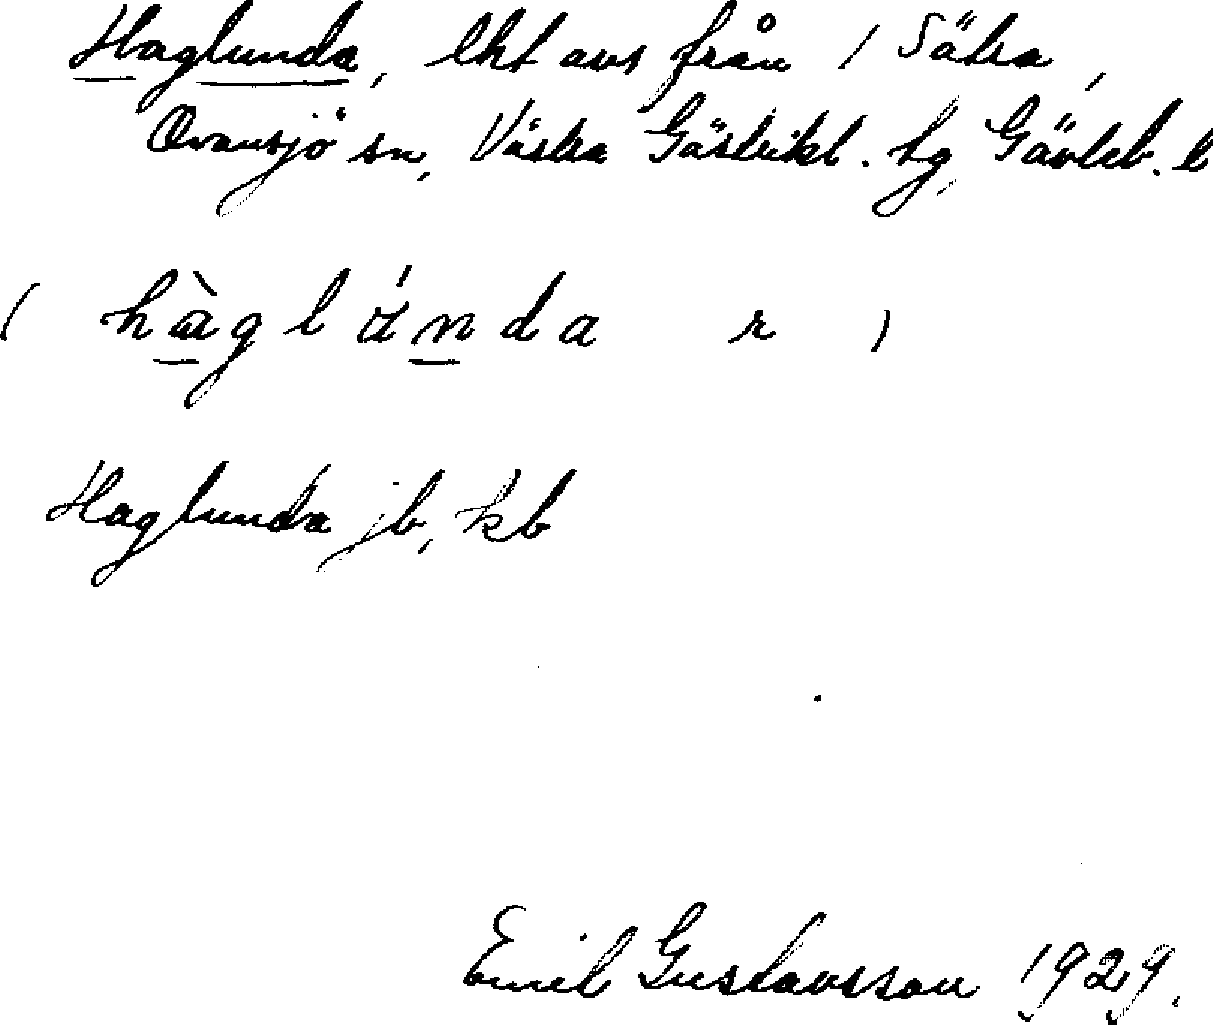 Haglunda, lht avs från 1 Sätra,
Ovansjö sn, Västra Gästrikl. tg, Gävleb. l
( hàglúnda r )
Haglunda jb, kb
Emil Gustavsson 1929.